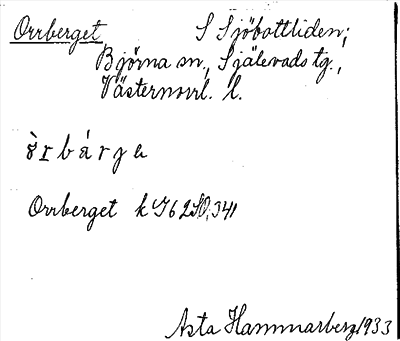 Orrberget S Sjöbottliden;
Björna sn., Själevads tg.,
Västernorrl. l.
Orrberget k
Asta Hammarberg 1933